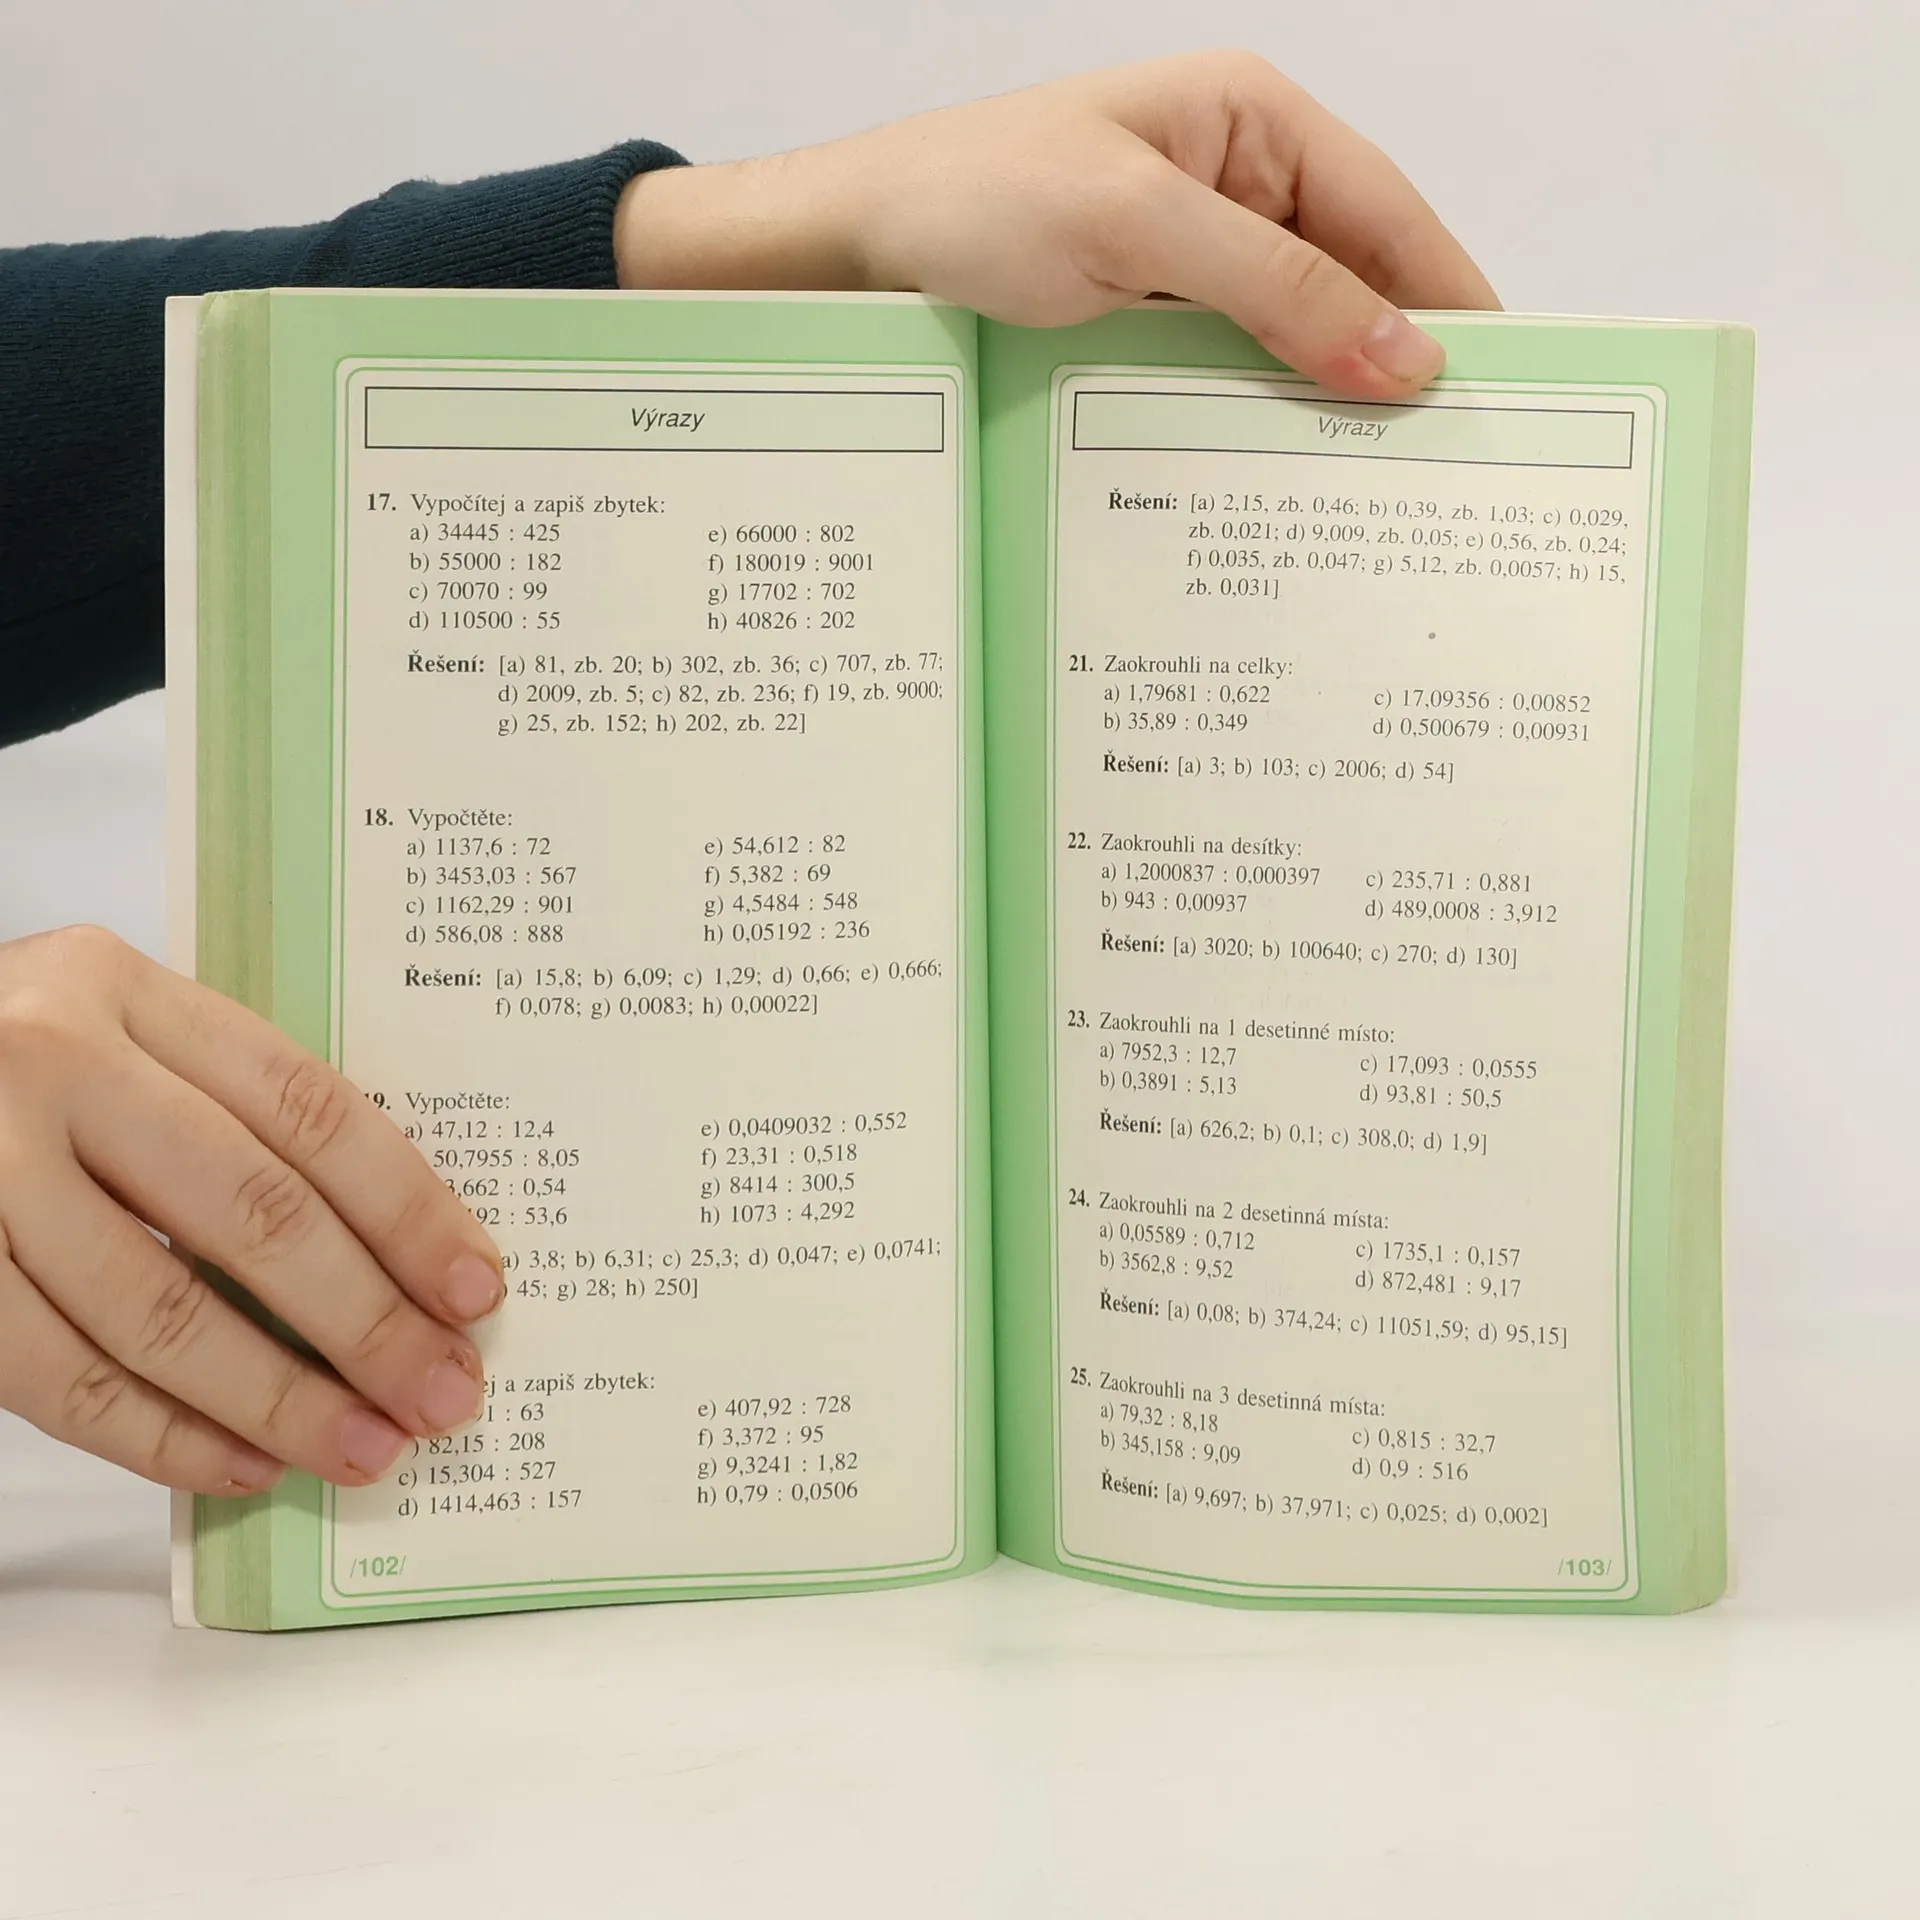 Výrazy
17. Vypočítej a zapiš zbytek:
a) 34445 : 425
e) 66000 : 802
b) 55000 : 182
f) 180019 : 9001
c) 70070 : 99
g) 17702 : 702
d) 110500 : 55
h) 40826 : 202
Řešení: [a) 81, zb. 20; b) 302, zb. 36; c) 707, zb. 77;
d) 2009, zb. 5; c) 82, zb. 236; f) 19, zb. 9000;
g) 25, zb. 152; h) 202, zb. 22]
18. Vypočtěte:
a) 1137,6 : 72
e) 54,612 : 82
b) 3453,03 : 567
f) 5,382 : 69
c) 1162,29 : 901
g) 4,5484 : 548
d) 586,08 : 888
h) 0,05192 : 236
Řešení: [a) 15,8; b) 6,09; c) 1,29; d) 0,66; e) 0,666;
f) 0,078; g) 0,0083; h) 0,00022]
9. Vypočtěte:
a) 47,12 : 12,4
e) 0,0409032 : 0,552
50,7955 : 8,05
f) 23,31 : 0,518
3,662 : 0,54
g) 8414 : 300,5
92 : 53,6
h) 1073 : 4,292
a) 3,8; b) 6,31; c) 25,3; d) 0,047; e) 0,0741;
) 45; g) 28; h) 250]
ej a zapiš zbytek:
1 : 63
e) 407,92 : 728
) 82,15 : 208
f) 3,372 : 95
c) 15,304 : 527
g) 9,3241 : 1,82
d) 1414,463 : 157
h) 0,79 : 0,0506
/102/
Výrazy
Řešení: [a) 2,15, zb. 0,46; b) 0,39, zb. 1,03; c) 0,029,
zb. 0,021; d) 9,009, zb. 0,05; e) 0,56, zb. 0,24;
f) 0,035, zb. 0,047; g) 5,12, zb. 0,0057; h) 15,
zb. 0,031]
21. Zaokrouhli na celky:
a) 1,79681 : 0,622
c) 17,09356 : 0,00852
b) 35,89 : 0,349
d) 0,500679 : 0,00931
Řešení: [a) 3; b) 103; c) 2006; d) 54]
22. Zaokrouhli na desítky:
a) 1,2000837 : 0,000397
c) 235,71 : 0,881
b) 943 : 0,00937
d) 489,0008 : 3,912
Řešení: [a) 3020; b) 100640; c) 270; d) 130]
23. Zaokrouhli na 1 desetinné místo:
a) 7952,3 : 12,7
c) 17,093 : 0,0555
b) 0,3891 : 5,13
d) 93,81 : 50,5
Řešení: [a) 626,2; b) 0,1; c) 308,0; d) 1,9]
24. Zaokrouhli na 2 desetinná místa:
a) 0,05589 : 0,712
c) 1735,1 : 0,157
b) 3562,8 : 9,52
d) 872,481 : 9,17
Řešení: [a) 0,08; b) 374,24; c) 11051,59; d) 95,15]
25. Zaokrouhli na 3 desetinná místa:
a) 79,32 : 8,18
c) 0,815 : 32,7
b) 345,158 : 9,09
d) 0,9 : 516
Řešení: [a) 9,697; b) 37,971; c) 0,025; d) 0,002]
/103/